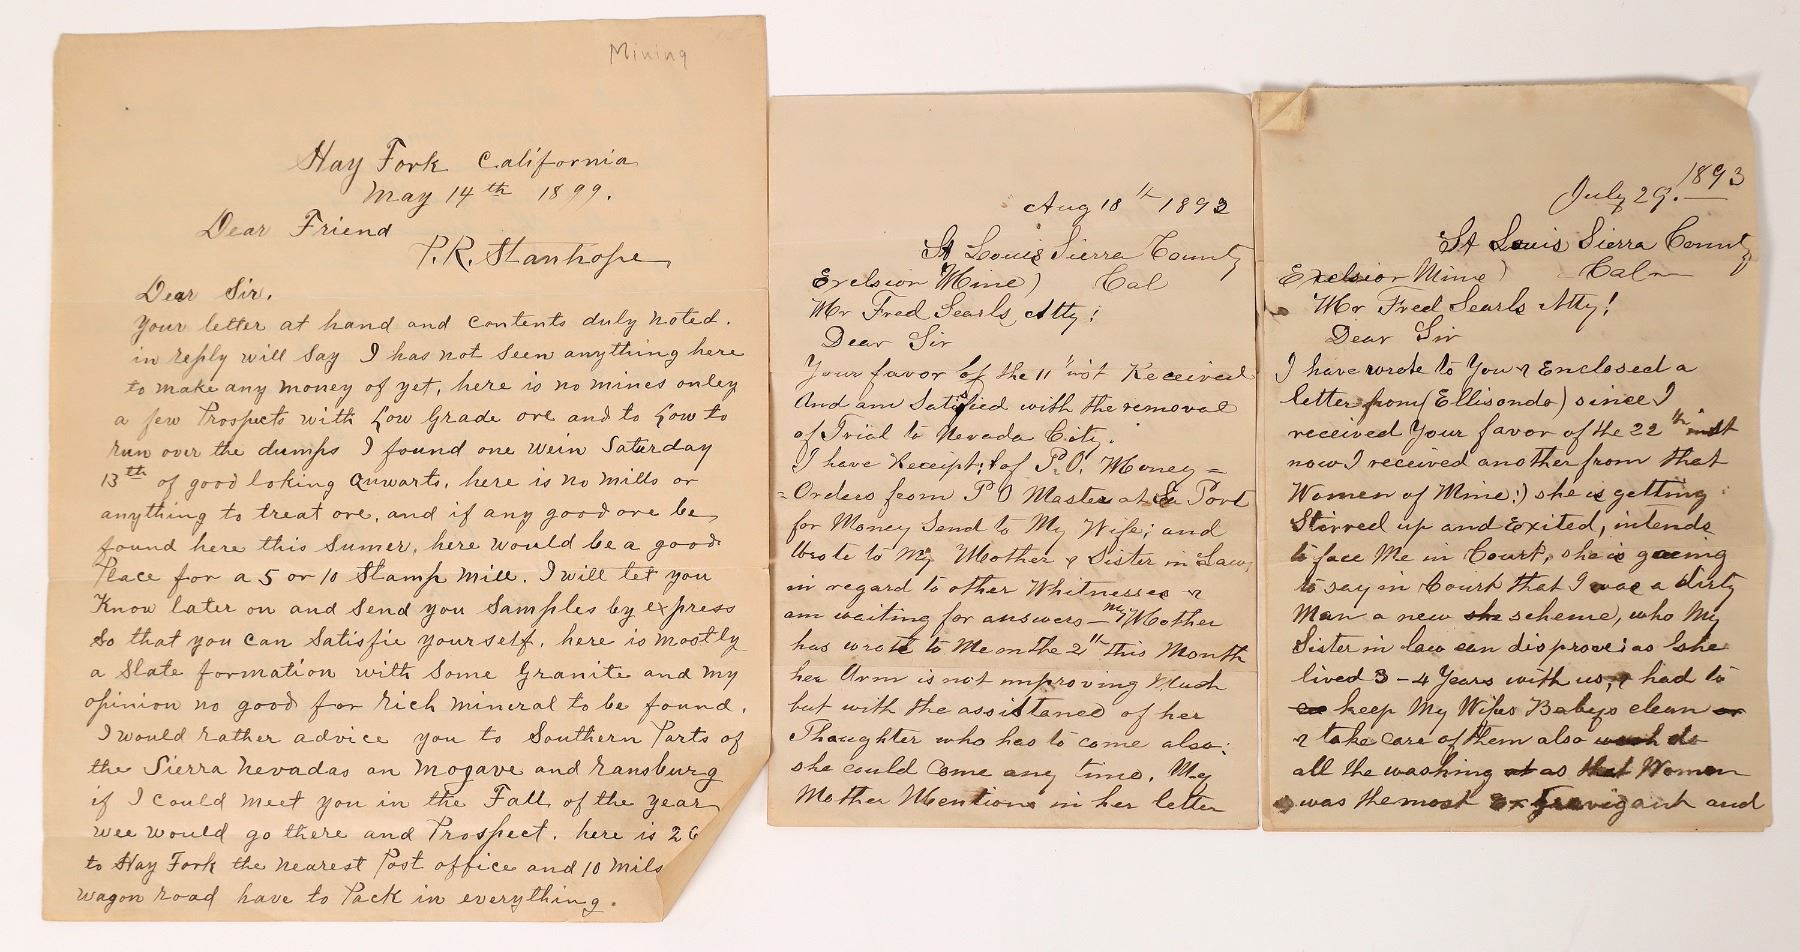 Mining
Hay Fork California
May 14th 1899.
Dear Friend
P.R. Stanhope
Dear Sir.
your letter at hand and contents duly noted.
in reply will say I has not seen anything here
to make any money of yet, here is no mines onley
a few Prospects with Low Grade ore and to Low to
run over the dumps I found one wein Saturday
13th of good loking Quwarts, here is no mills or
anything to treat ore, and if any good ore be
found here this Sumer, here would be a good
Place for a 5 or 10 Stamp Mill. I will let you
Know later on and send you samples by express
So that you can Satisfie yourself. here is mostly
a Slate formation with Some Granite and my
opinion no good for rich mineral to be found.
I would rather advice you to Southern Parts of
the Sierra Nevadas an Mogave and ransburg
if I could meet you in the Fall of the year
wee would go there and Prospect. here is 26
to Hay Fork the nearest Post office and 10 mils
wagon road have to Pack in everything.
Aug 18th 1893
St Louis Sierra County
Excelsior Mine) Cal
Mr Fred Searls Atty!
Dear Sir
Your favor of the 11" inst Received
And am Satisfied with the removal
of Trial to Nevada City.
I have Receipts of P.O. Money =
=Orders from P O Master at La Port
for Money Send to My Wife; and
Wrote to My Mother & Sister in Law,
in regard to other Whitnesses &
am waiting for answers — my Mother
has wrote to Me on the 2" this Month
her Arm is not improving Much
but with the assistance of her
Thaughter who has to come also:
she could Come any time. My
Mother Mentions in her letter
July 29. 1893
St Louis Sierra County
Excelsior Mine) Cal
Mr Fred Searls Atty!
Dear Sir
I have wrote to You & Enclosed a
letter from (Ellisondo) since I
received Your favor of the 22th inst
now I received another from that
Women of Mine:) she is getting
Stirred up and Exited, intends
to face Me in Court, she is going
to say in Court that I was a dirty
Man a new she scheme, who My
Sister in law can disprove: as she
lived 3-4 Years with us, & had to
keep My Wifes Babys clean or
& take care of them also wash do
all the washing at as that Women
was the most Extravigant and